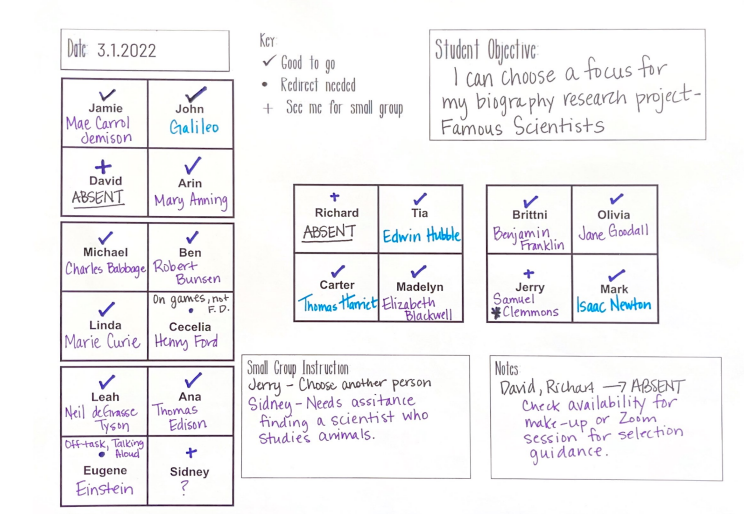 Date: 3.1.2022
Key
✓ Good to go
• Redirect needed
+ See me for small group
Student Objective:
I can choose a focus for
my biography research project-
Famous Scientists
✓
Jamie
Mae Carrol
Jemison
✓
John
Galileo
+
David
ABSENT
✓
Arin
Mary Anning
✓
Michael
Charles Babbage
✓
Ben
Robert
Bunsen
✓
Linda
Marie Curie
On games, not
F.D.
•
Cecelia
Henry Ford
✓
Leah
Neil deGrasse
Tyson
✓
Ana
Thomas
Edison
Off-task, Talking
Aloud
•
Eugene
Einstein
+
Sidney
?
+
Richard
ABSENT
✓
Tia
Edwin Hubble
✓
Carter
Thomas Harriet
✓
Madelyn
Elizabeth
Blackwell
✓
Brittni
Benjamin
Franklin
✓
Olivia
Jane Goodall
+
Jerry
Samuel
*Clemmons
✓
Mark
Isaac Newton
Small Group Instruction
Jerry - Choose another person
Sidney - Needs assitance
finding a scientist who
studies animals.
Notes
David, Richart → ABSENT
Check availability for
make-up or Zoom
session for selection
guidance.